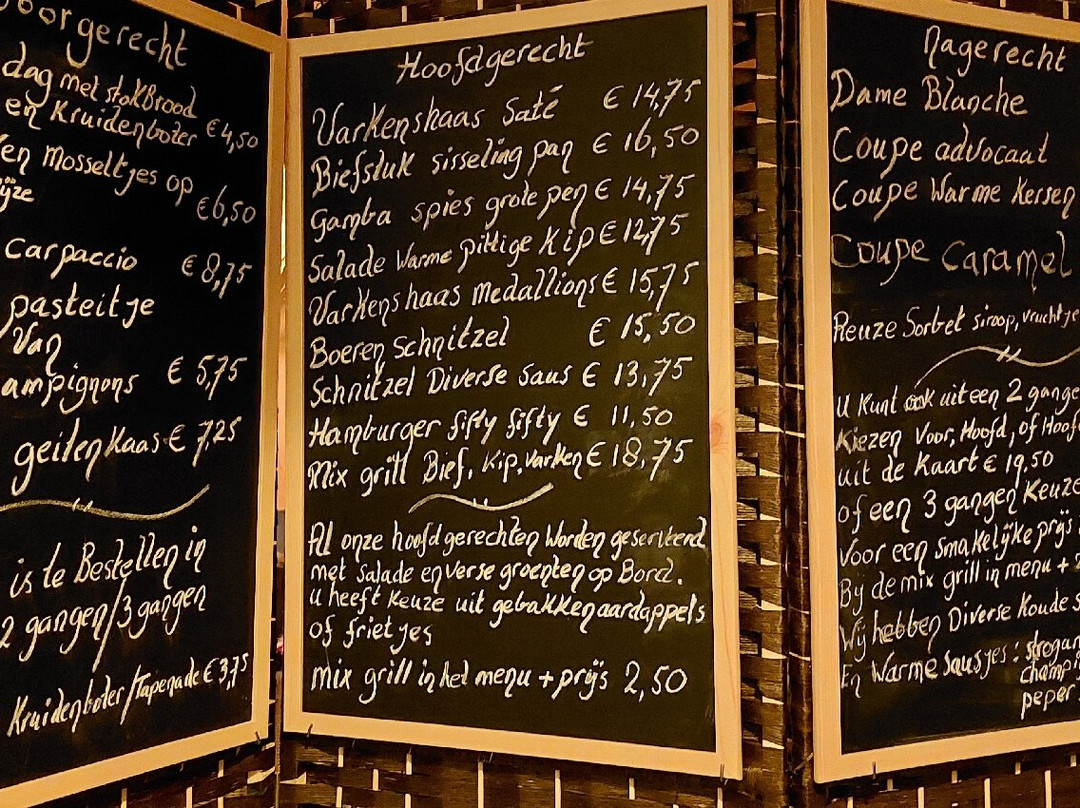 Voorgerecht
dag met stokBrood
en Kruidenboter €4,50
en Mosseltjes op
€6,50
carpaccio €8,75
pasteitje
Van
ampignons €5,75
geitenkaas €7,25
is te Bestellen in
2 gangen/3 gangen
Kruidenboter/Tapenade €3,75
Hoofdgerecht
Varkenshaas Saté €14,75
Biefstuk sisseling pan €16,50
Gamba spies grote pen €14,75
Salade Warme pittige Kip €12,75
Varkenshaas medallions €15,75
Boeren Schnitzel €15,50
Schnitzel Diverse Saus €13,75
Hamburger fifty fifty €11,50
Mix grill Bief, Kip, Varken €18,75
Al onze hoofdgerechten Worden geserveerd
met Salade en verse groenten op Bord.
u heeft Keuze uit gebakken aardappels
of frietjes
mix grill in het menu + prijs 2,50
Nagerecht
Dame Blanche
Coupe advocaat
Coupe Warme Kersen
Coupe Caramel
Reuze Sorbet siroop, vruchtje
U Kunt ook uit een 2 gange
Kiezen Voor, Hoofd, of Hoof
uit de Kaart € 19,50
of een 3 gangen Keuze
Voor een smakelijke prijs
Bij de mix grill in menu + 2
Wij hebben Diverse Koude s
En Warme sausjes: strogan
champi
peper